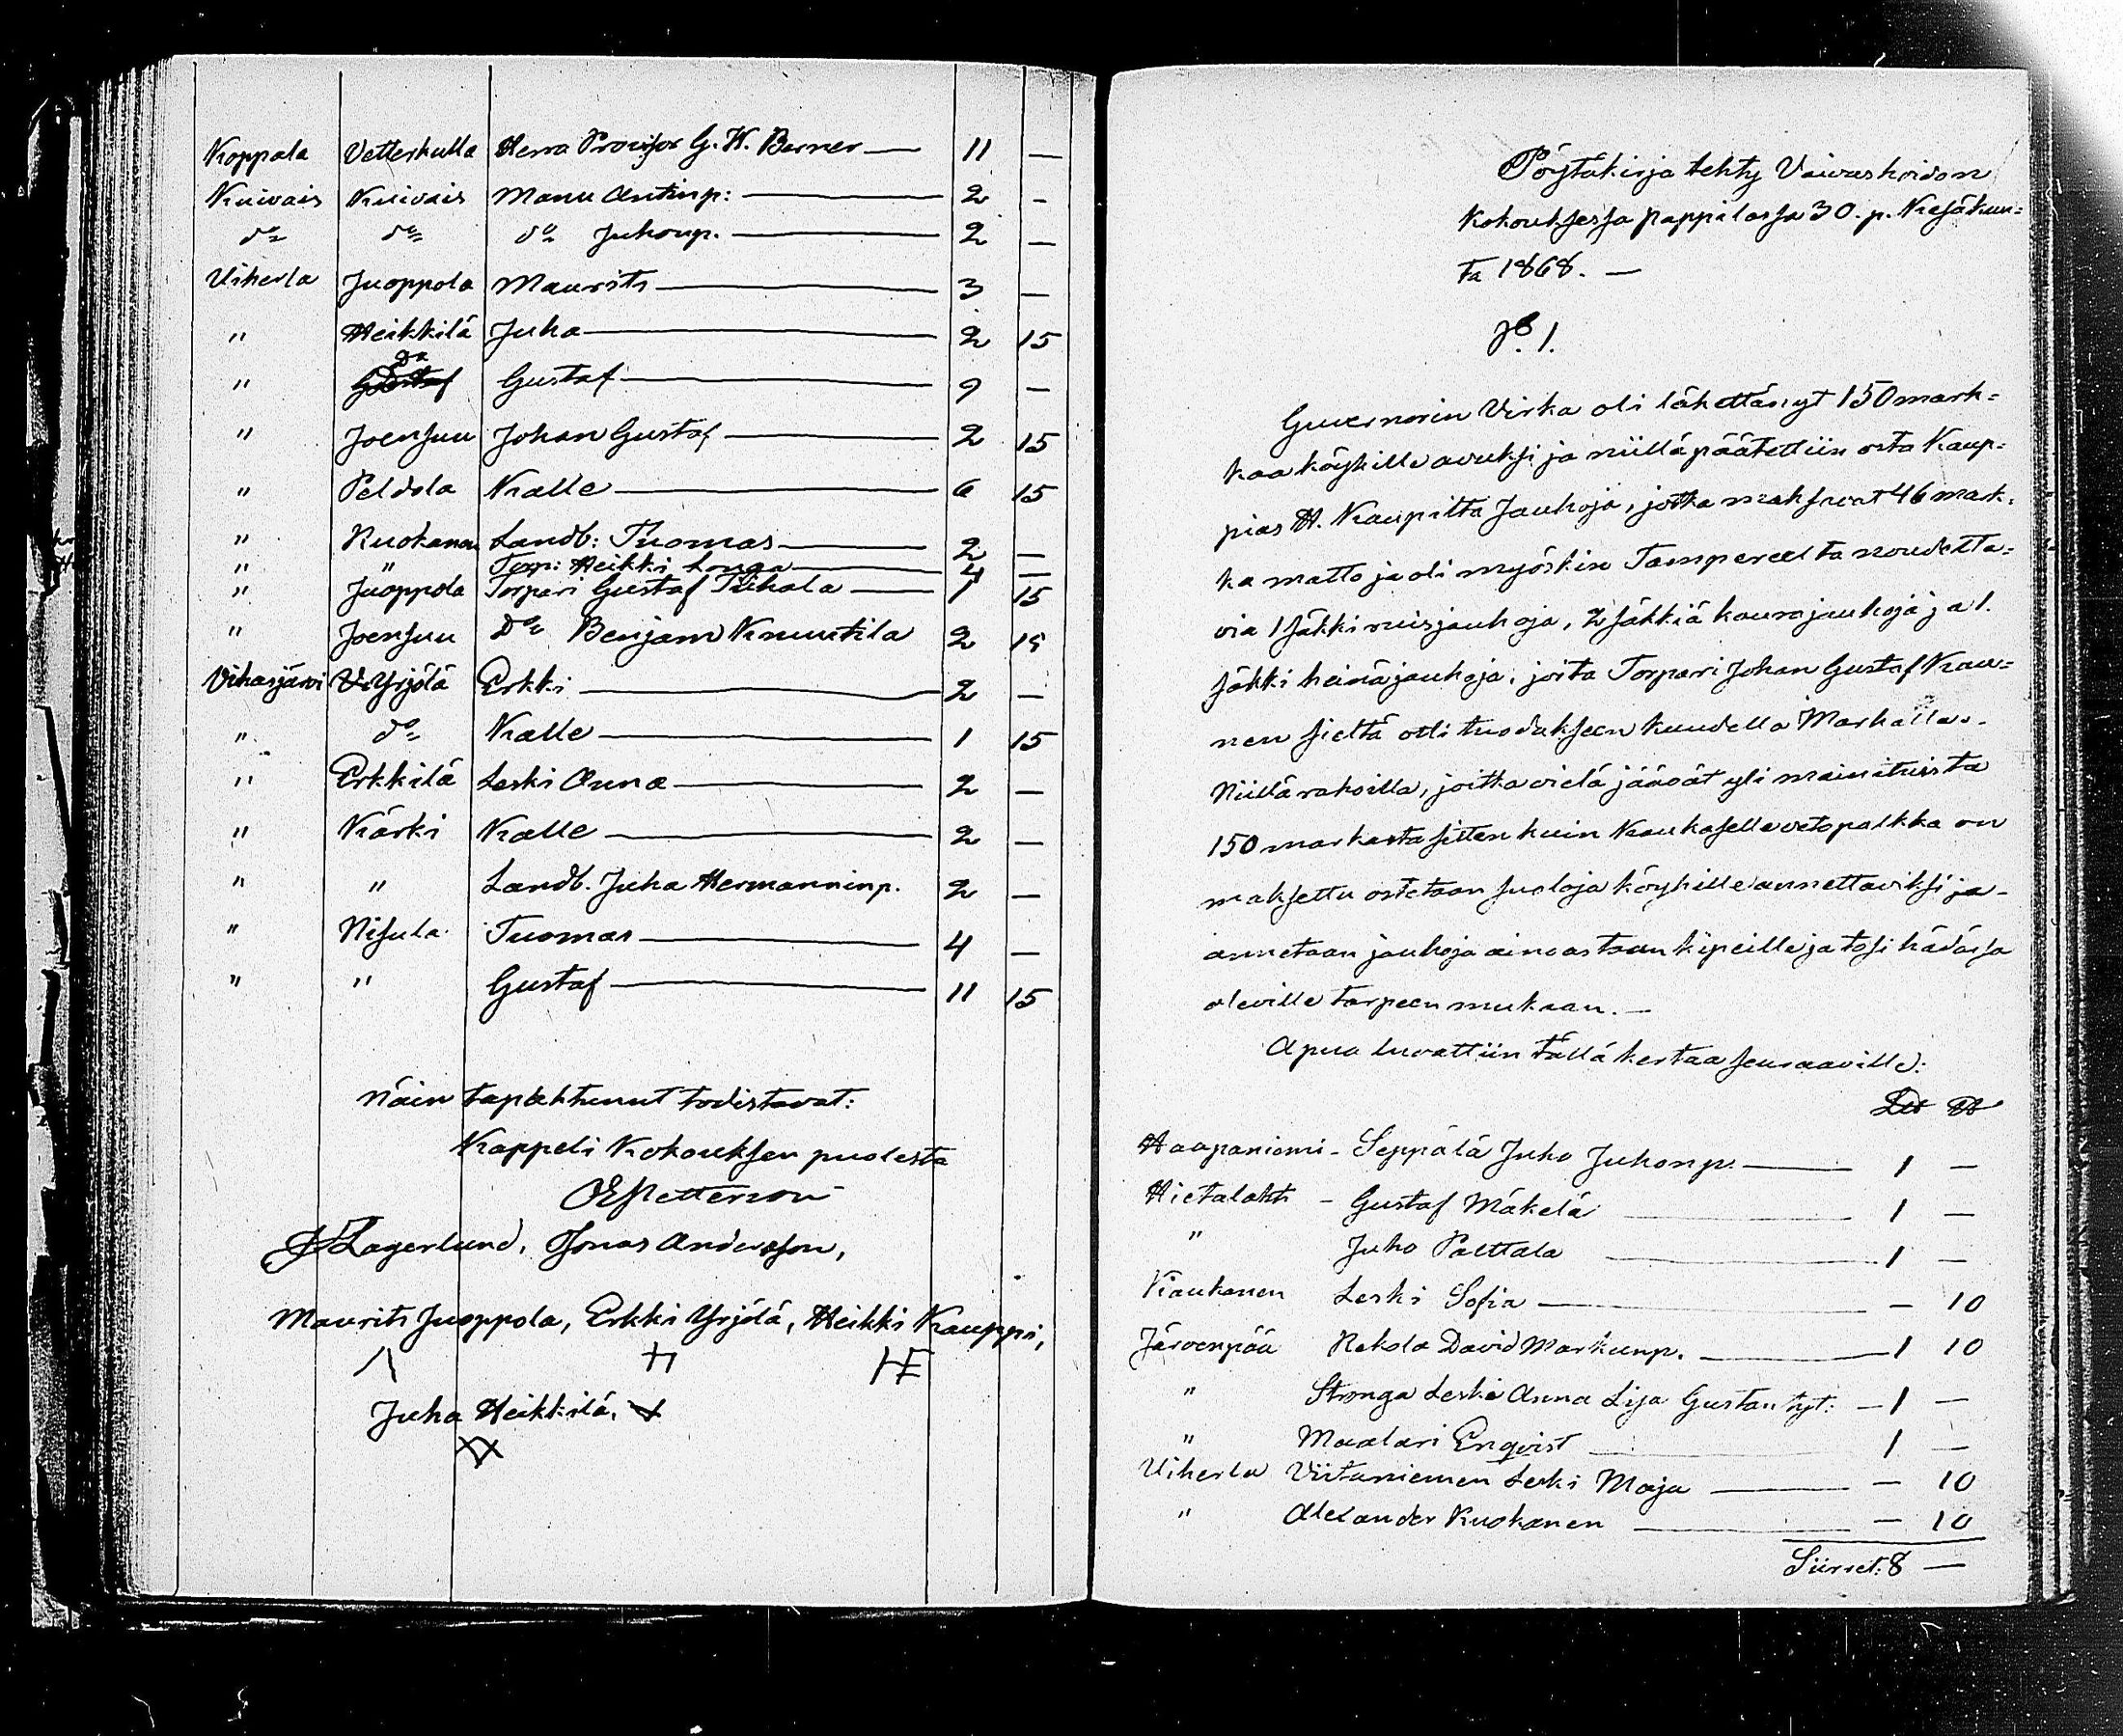 Koppala Vetterkulla Herra Provisor G. W. Berner — 11 —
Kuivais Kuivais Manu Antinp: — 2 —
do do do Juhonp. — 2 —
Uiherla Juoppola Maurits — 3 —
" Heikkilä Juha — 2 15
" do Gustaf — 9 —
" Joensuu Johan Gustaf — 2 15
" Peldola Kalle — 6 15
" Kuokanen Landb: Tuomas — 2 —
" " Torp: Heikki Longa — 4 —
" Juoppola Torpari Gustaf Tiihala — 1 15
" Joensuu Do Benjam Knuutila 2 15
Vihasjärvi Yrjölä Erkki — 2 —
" do Kalle — 1 15
" Erkkilä Leski Anna — 2 —
" Kärki Kalle — 2 —
" " Landb. Juha Hermanninp. 2 —
" Nisula Tuomas — 4 —
" " Gustaf — 11 15
Näin tapahtunut todistavat:
Kappeli Kokouksen puolesta
Petterson
Lagerlund, Jonas Andersson,
Maurits Juoppola, Erkki Yrjölä, Heikki Kauppi,
Juha Heikkilä.
Pöytäkirja tehty Vaivashoidon
Kokouksessa pappilassa 30. p. Kesäkuu=
ta 1868. —
§. 1.
Guvernorin Virka oli lähettänyt 150 mark=
kaa köyhille avuksi ja niillä päätettiin osta Kaup=
pias H. Kaupilta Jauhoja, jotka maksavat 46 mark=
ka matto ja oli myöskin Tampereelta noudetta=
via 1 säkki ruisjauhoja, 2 säkkiä kaurajauhoja ja 1.
säkki heinäjauhoja, joita Torpari Johan Gustaf Kau=
nen sieltä otti tuodakseen kuudella Markalla. -
Niillä rahoilla, joitka vielä jäävät yli mainituista
150 markasta sitten kuin Kaukaselle vetopalkka on
maksettu ostetaan suoloja köyhille annettaviksi ja -
annetaan jauhoja ainoastaan kipeille ja tosi hädässä
oleville tarpeen mukaan. —
Apua luvattiin tällä kertaa seuraaville:
Haapaniemi - Seppälä Juho Juhonp. — 1 —
Hietalahti - Gustaf Mäkelä — 1 —
" Juho Palttala — 1 —
Kaukanen Leski Sofia — — 10
Järvenpää Rekola David Markunp. — 1 10
" Stronga Leski Anna Lisa Gustau tyt: — 1 —
" Maalari Enqvist — 1 —
Uiherla Viitaniemen Leski Maja — — 10
" Alexander Kuokanen — — 10
Siirret: 8 —